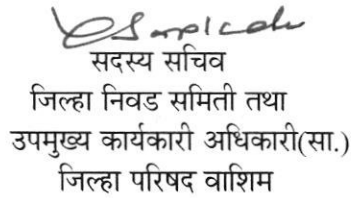 सदस्य सचिव
जिल्हा निवड समिती तथा
उपमुख्य कार्यकारी अधिकारी(सा.)
जिल्हा परिषद वाशिम